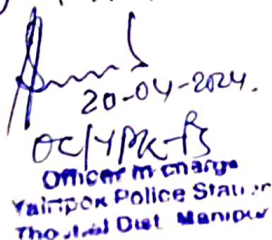 20-04-2024.
OC/YPK-PS
Officer in charge
Yairipok Police Station
Thoubal Dist. Manipur